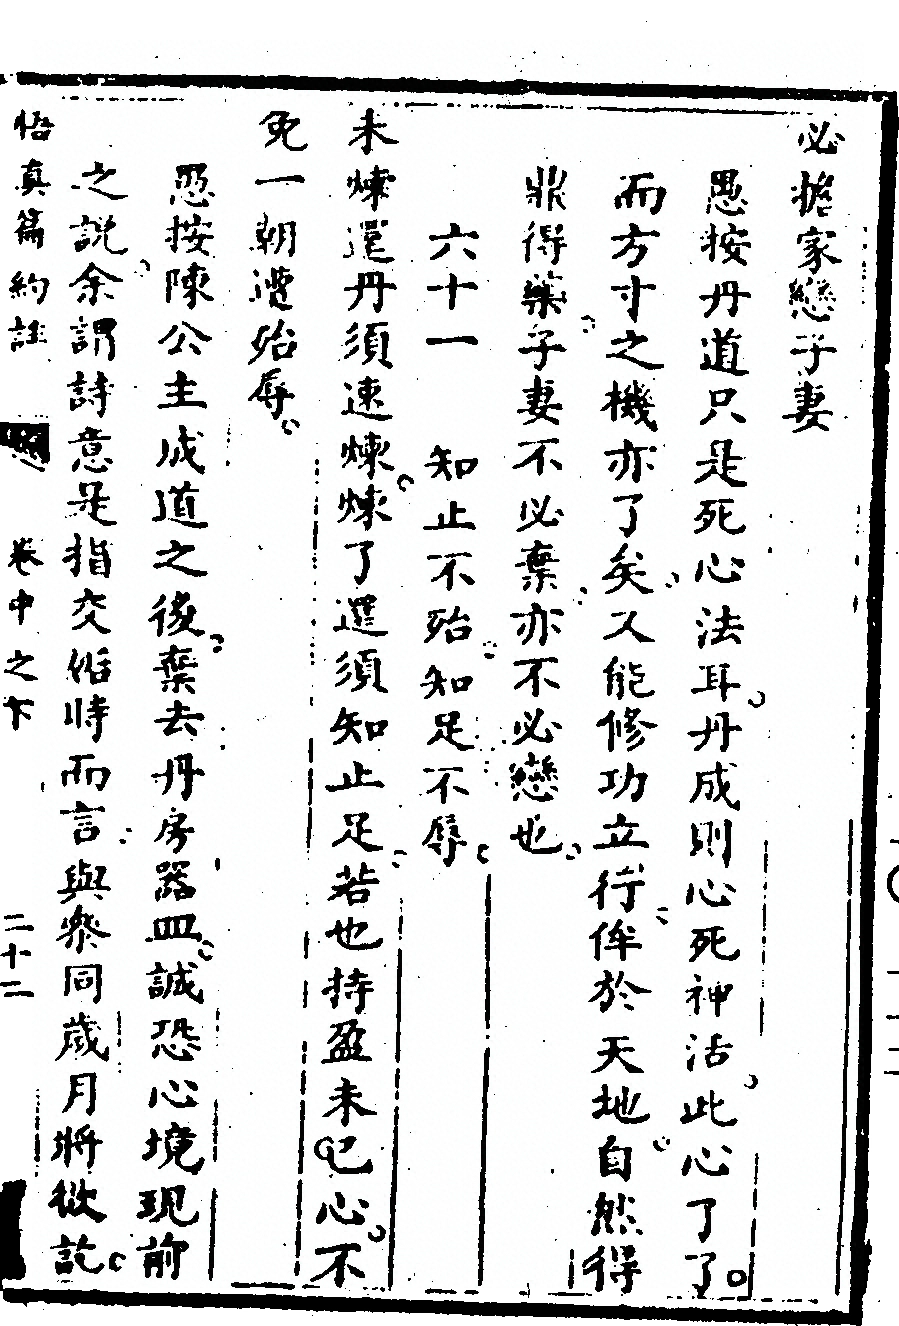 必擔家戀子妻
愚按丹道只是死心法耳丹成則心死神活此心了了
而方寸之機亦了矣又能修功立行侔於天地自然得
鼎得藥子妻不必棄亦不必戀也
六十一 知止不殆知足不辱
未煉還丹須速煉煉了還須知止足若也持盈未已心不
免一朝遭殆辱
愚按陳公主成道之後棄去丹房器皿誠恐心境現前
之說余謂詩意是指交媾時而言與參同歲月將欲訖
悟真篇約註 卷中之下 二十二